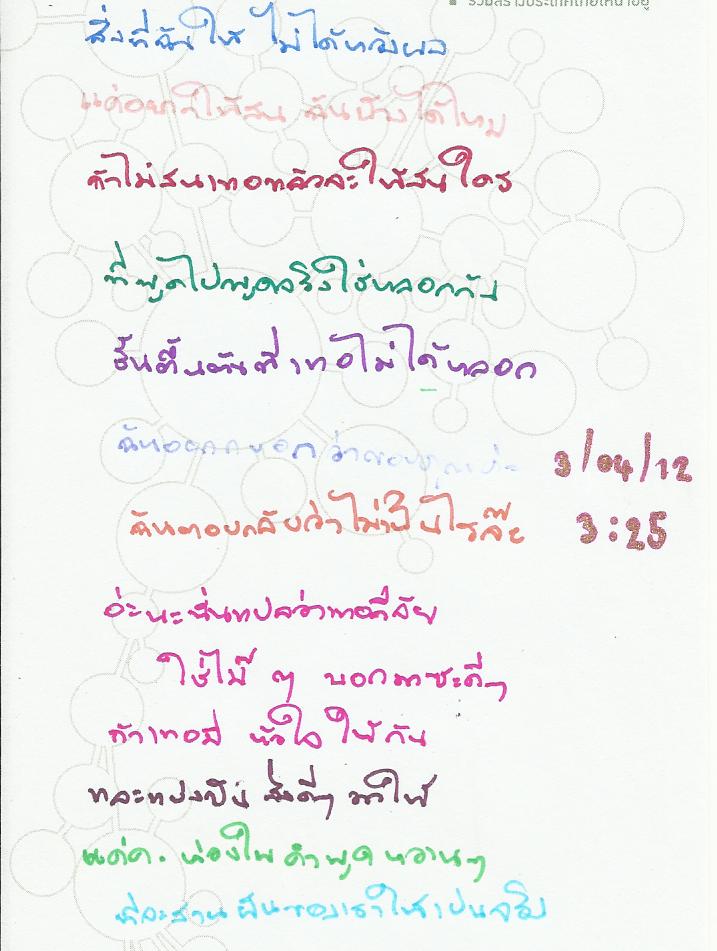 ร่วมสร้างประเทศไทยให้น่าอยู่
สิ่งที่ฉันให้ ไม่ได้หวังผล
แค่อยากให้สน ฉันบ้างได้ไหม
ถ้าไม่สนเทอแล้วจะให้สนใคร
ที่พูดไปพูดจริงใช่หลอกกัน
ฉัน ที่เทอไม่ได้หลอก
ฉัน บอก ว่าขอบคุณ
3/04/12
ฉันตอบกลับว่าไม่เป็นไรล๊ะ
3:25
อ่ะนะนั่นแปลว่าเทอก็
ใช่ไม๊ ๆ บอกมาซะดีๆ
ถ้าเทอมี หัวใจ ให้กัน
และแบ่งปัน สิ่งดีๆ มาให้
แค่ค. ห่วงใย คำพูด หวานๆ
ก็จะสานฝันของเราให้เป็นจริง